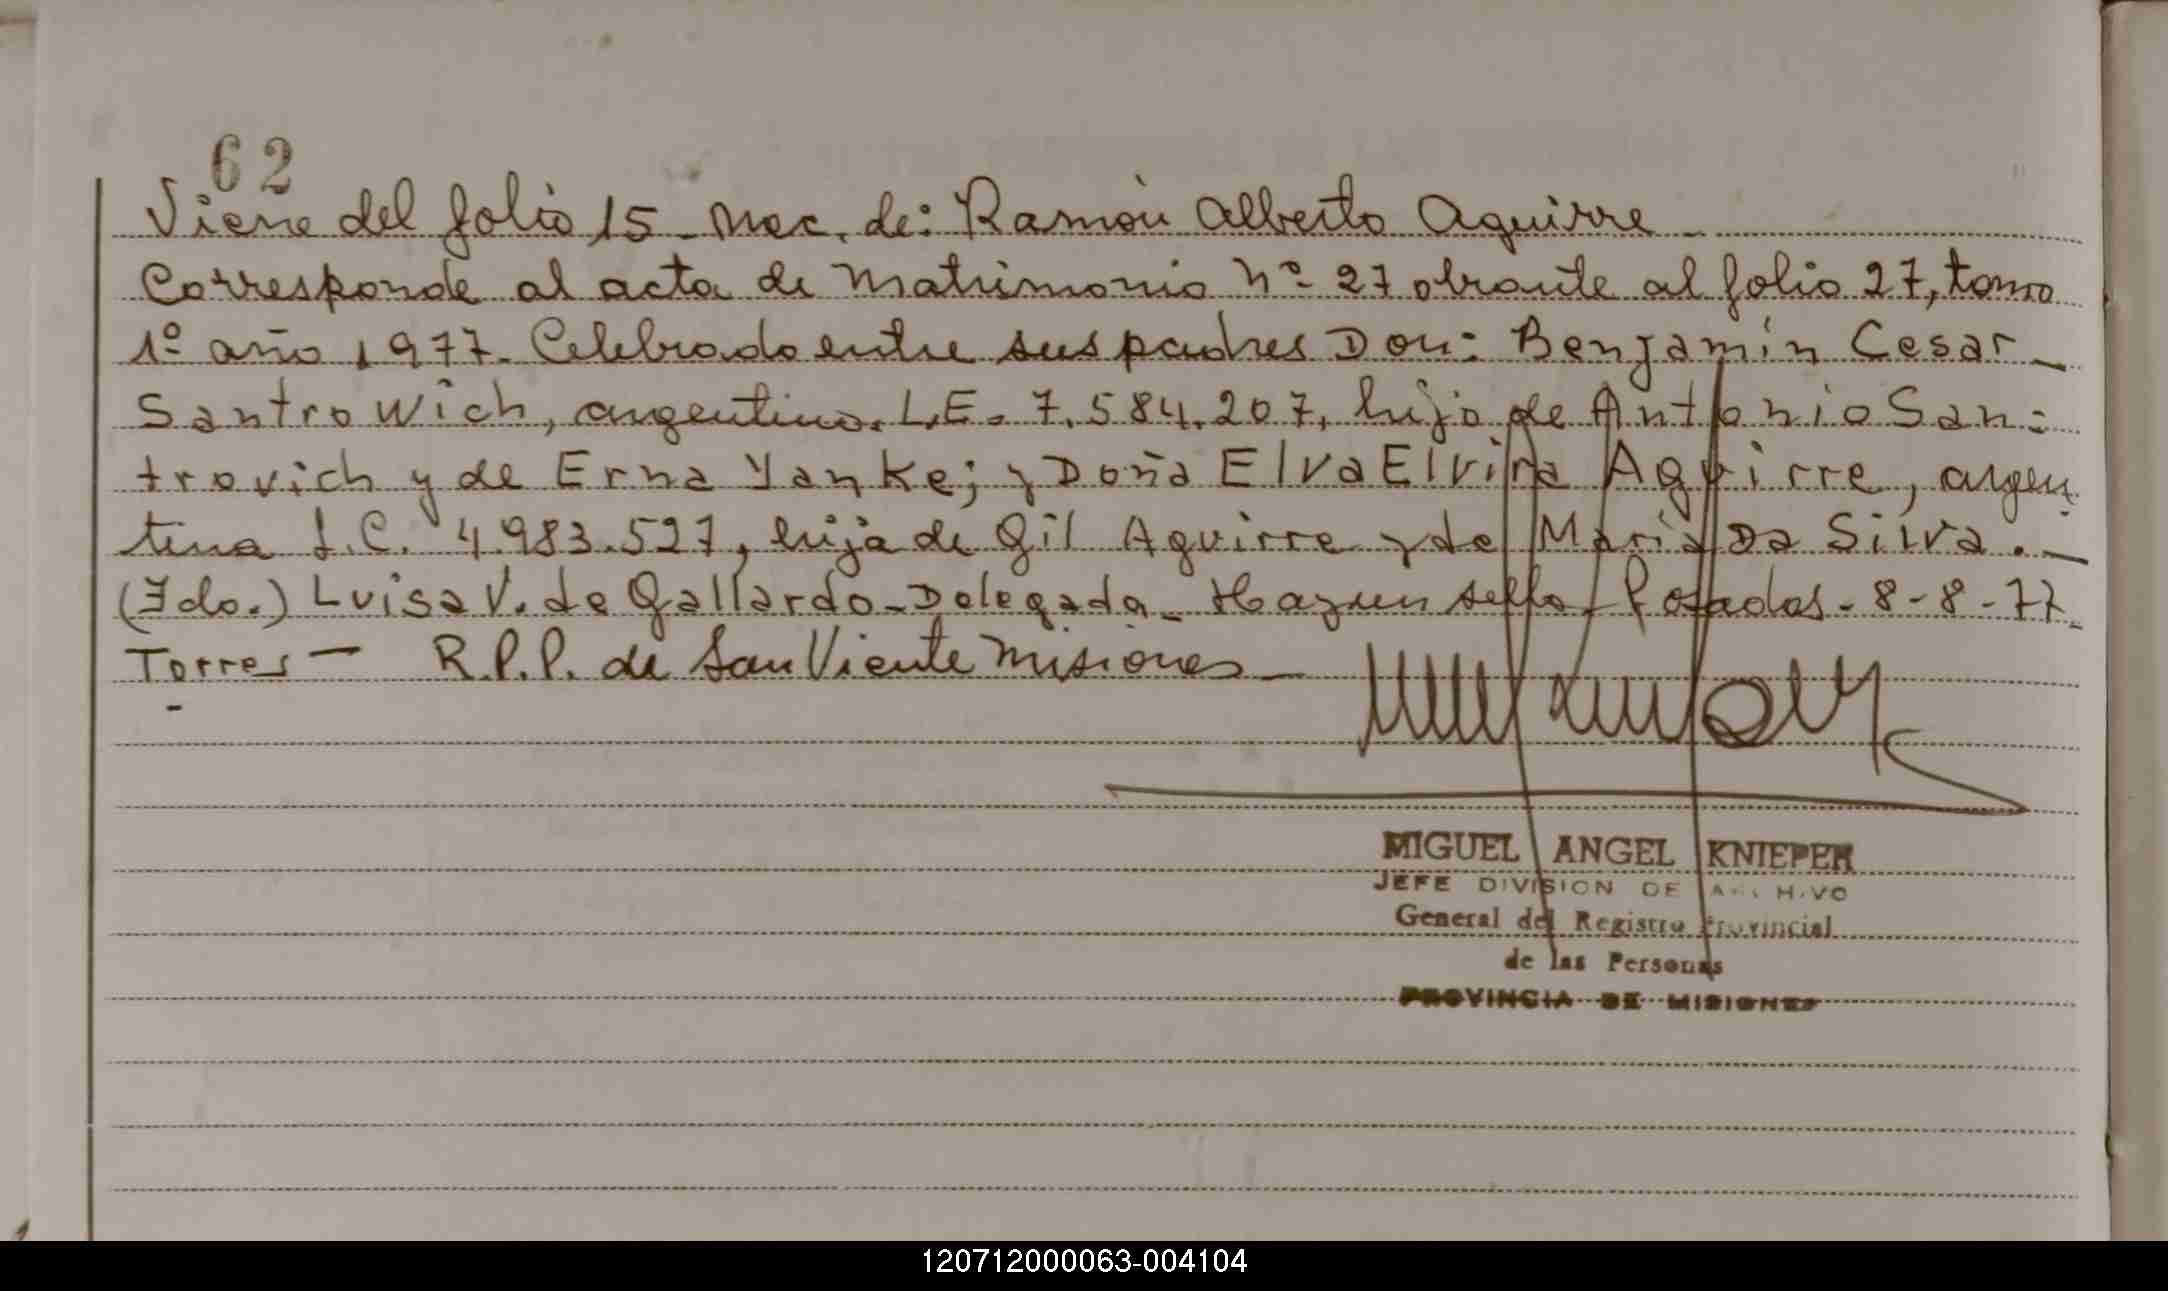 62
Viene del folio 15 - Nac. de: Ramón Alberto Aguirre -
Corresponde al acta de Matrimonio Nº 27 obrante al folio 27, tomo
1º año 1977. Celebrado entre sus padres Don: Benjamín Cesar -
Santrowich, argentino. L.E. 7.584.207, hijo de Antonio San=
trovich y de Erna Yanke; y Doña Elva Elvira Aguirre, argen
tina L.C. 4.983.527, hija de Gil Aguirre y de María Da Silva. -
(Fdo.) Luisa V. de Gallardo - Delegada - Hay un sello - Posadas - 8-8-77-
Torres - R.P.P. de San Viente Misiones -
MIGUEL ANGEL KNIEPER
JEFE DIVISION DE ARCHIVO
General del Registro Provincial
de las Personas
PROVINCIA DE MISIONES
120712000063-004104